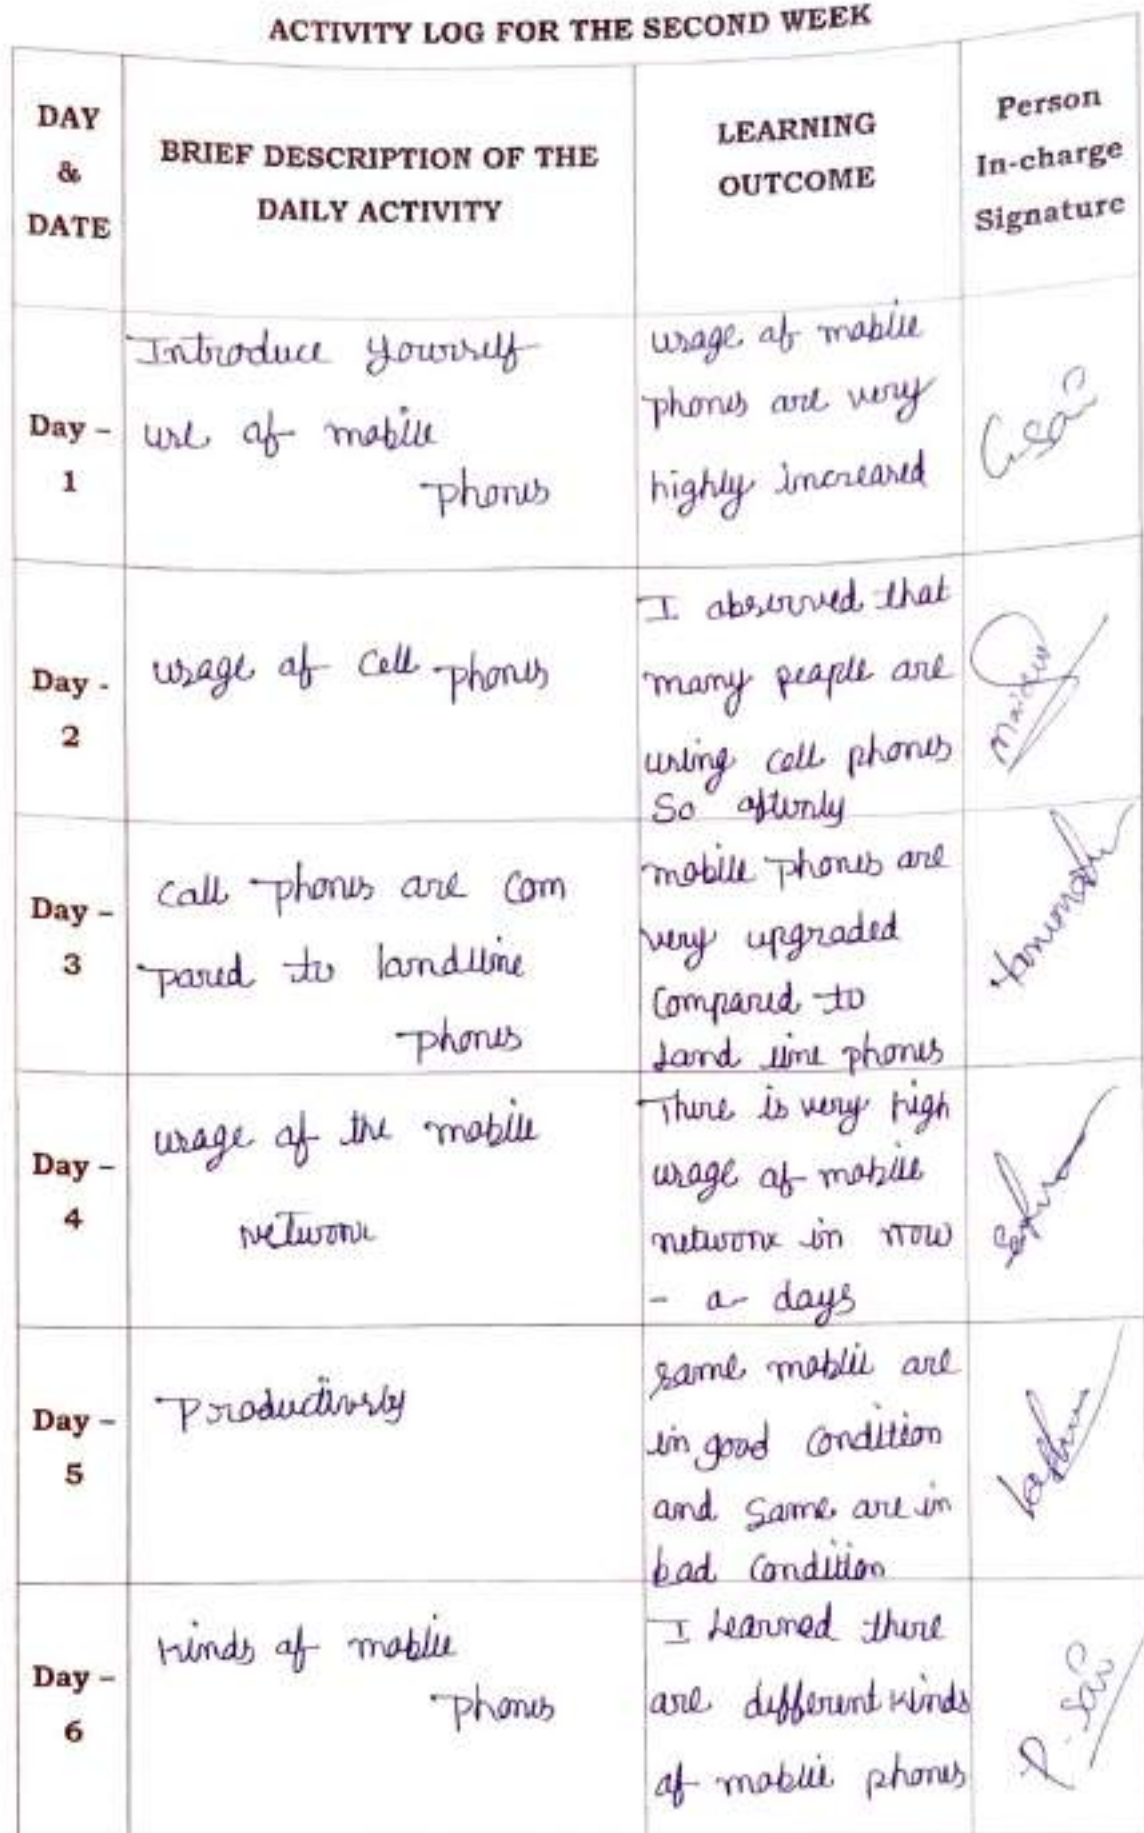 ACTIVITY LOG FOR THE SECOND WEEK
DAY
&
DATE
BRIEF DESCRIPTION OF THE
DAILY ACTIVITY
LEARNING
OUTCOME
Person
In-charge
Signature
Day -
1
Introduce Yourself
use of moblie
phones
usage of moblie
phones are very
highly increased
G.Sai
Day -
2
usage of Cell phones
I observed that
many people are
using cell phones
So oftenly
Day -
3
Call phones are Com
pared to landline
phones
mobile phones are
very upgraded
Compared to
Land line phones
Day -
4
usage of the moblie
network
There is very high
usage of mobile
network in now
- a- days
Day -
5
Productivsly
some moblie are
in good Condition
and Some are in
bad Condition
Day -
6
kinds of moblie
phones
I Learned there
are different kinds
of moblie phones
P. Sai